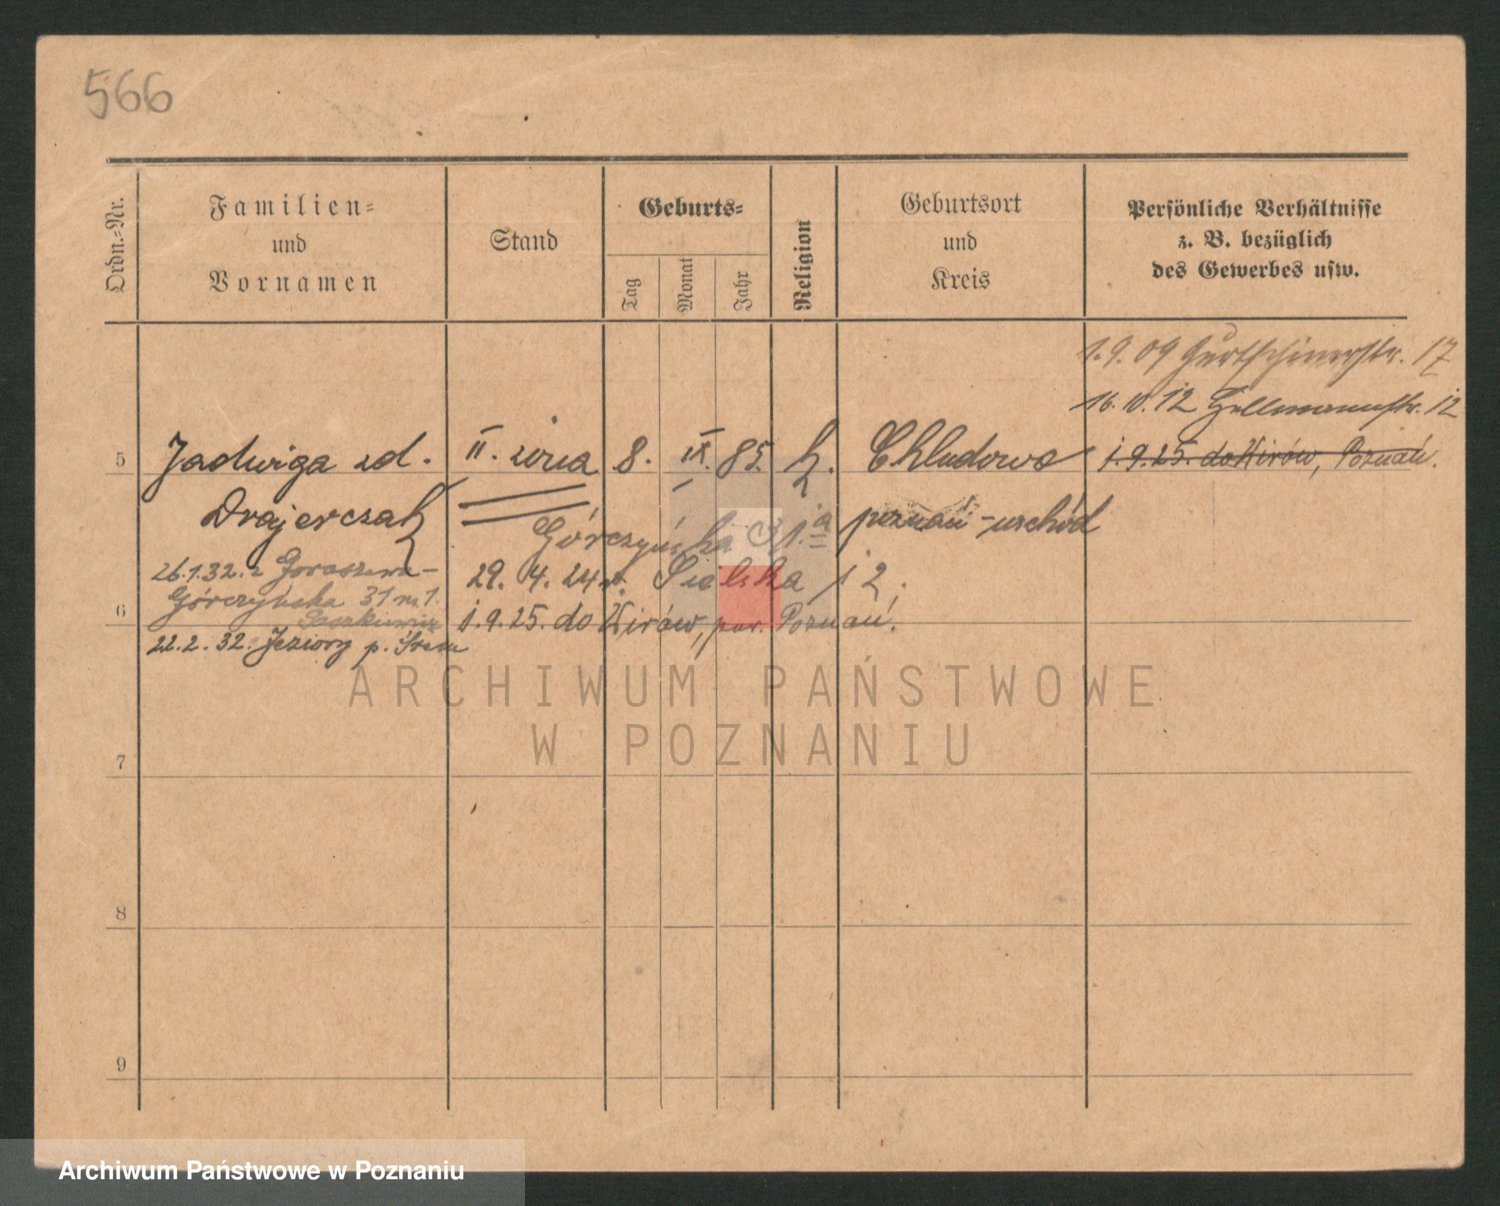 566
Ordn.-Nr.
Familien-
und
Vornamen
Stand
Geburts-
Tag
Monat
Jahr
Religion
Geburtsort
und
Kreis
Persönliche Verhältnisse
z. B. bezüglich
des Gewerbes usw.
1.9.09 Gurtschinerstr. 17
16.10.12 Hellmannstr. 12
5 Jadwiga zd. II. żona 8. IX. 85. k. Chludowo 1.9.25. do Kirów, Poznań.
Drajerczak
Górczyńska 31.a poznań-wschód
26.1.32. z Goraszewa-
29. 4. 24 12.
Górczyńska 31 m 1.
6
1.9.25. do Kirów, pow. Poznań.
22.2.32. Jeziory p. Śrem
ARCHIWUM PAŃSTWOWE
W POZNANIU
7
8
9
Archiwum Państwowe w Poznaniu